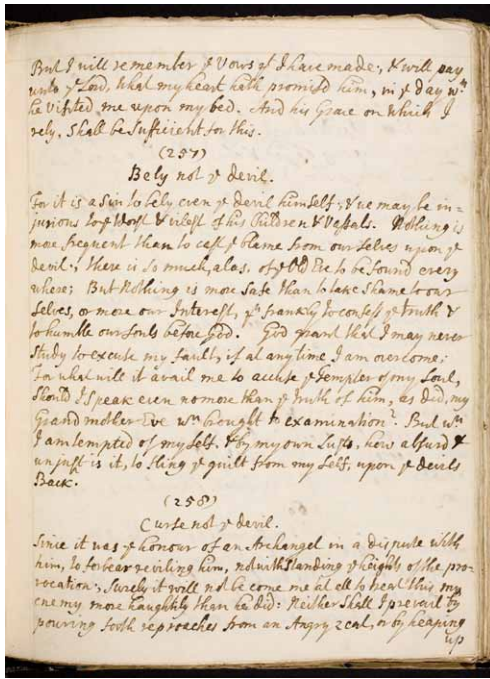 But I will remember ye Vows yt I have made; & will pay
unto ye Lord, what my heart hath promisd him, in ye day wn
he Visited me upon my bed. And his Grace on which I
rely, Shall be Sufficient for this.
(257)
Bely not ye devil.
For it is a Sin to bely even ye devil himself; & we may be in-
jurious to ye Worst & vilest of his Children & Vassals. Nothing is
more frequent than to cast ye blame from our Selves upon ye
devil; there is so much, alas, of ye Old Eve to be found every
where; But Nothing is more Safe than to take Shame to our
Selves, or more our Interest, yn frankly to confess ye truth &
to humble our Souls before God. God grant that I may never
Study to excuse my fault, if at any time I am overcome;
For what will it avail me to accuse ye Tempter of my Soul,
Should I Speak even no more than ye truth of him, as did, my
Grand mother Eve wn brought to examination? But wn
I am tempted of my Self, & by my own Lusts, how absurd &
unjust is it, to fling ye guilt from my Self, upon ye devils
Back.
(258)
Curse not ye devil.
Since it was ye honour of an Archangel in a dispute with
him, to forbear reviling him, notwithstanding ye heights of the pro-
vocation; Surely it will not become me at all to treat this my
enemy more haughtily than he did: Neither Shall I prevail by
pouring forth reproaches from an Angry zeal, or by heaping
up